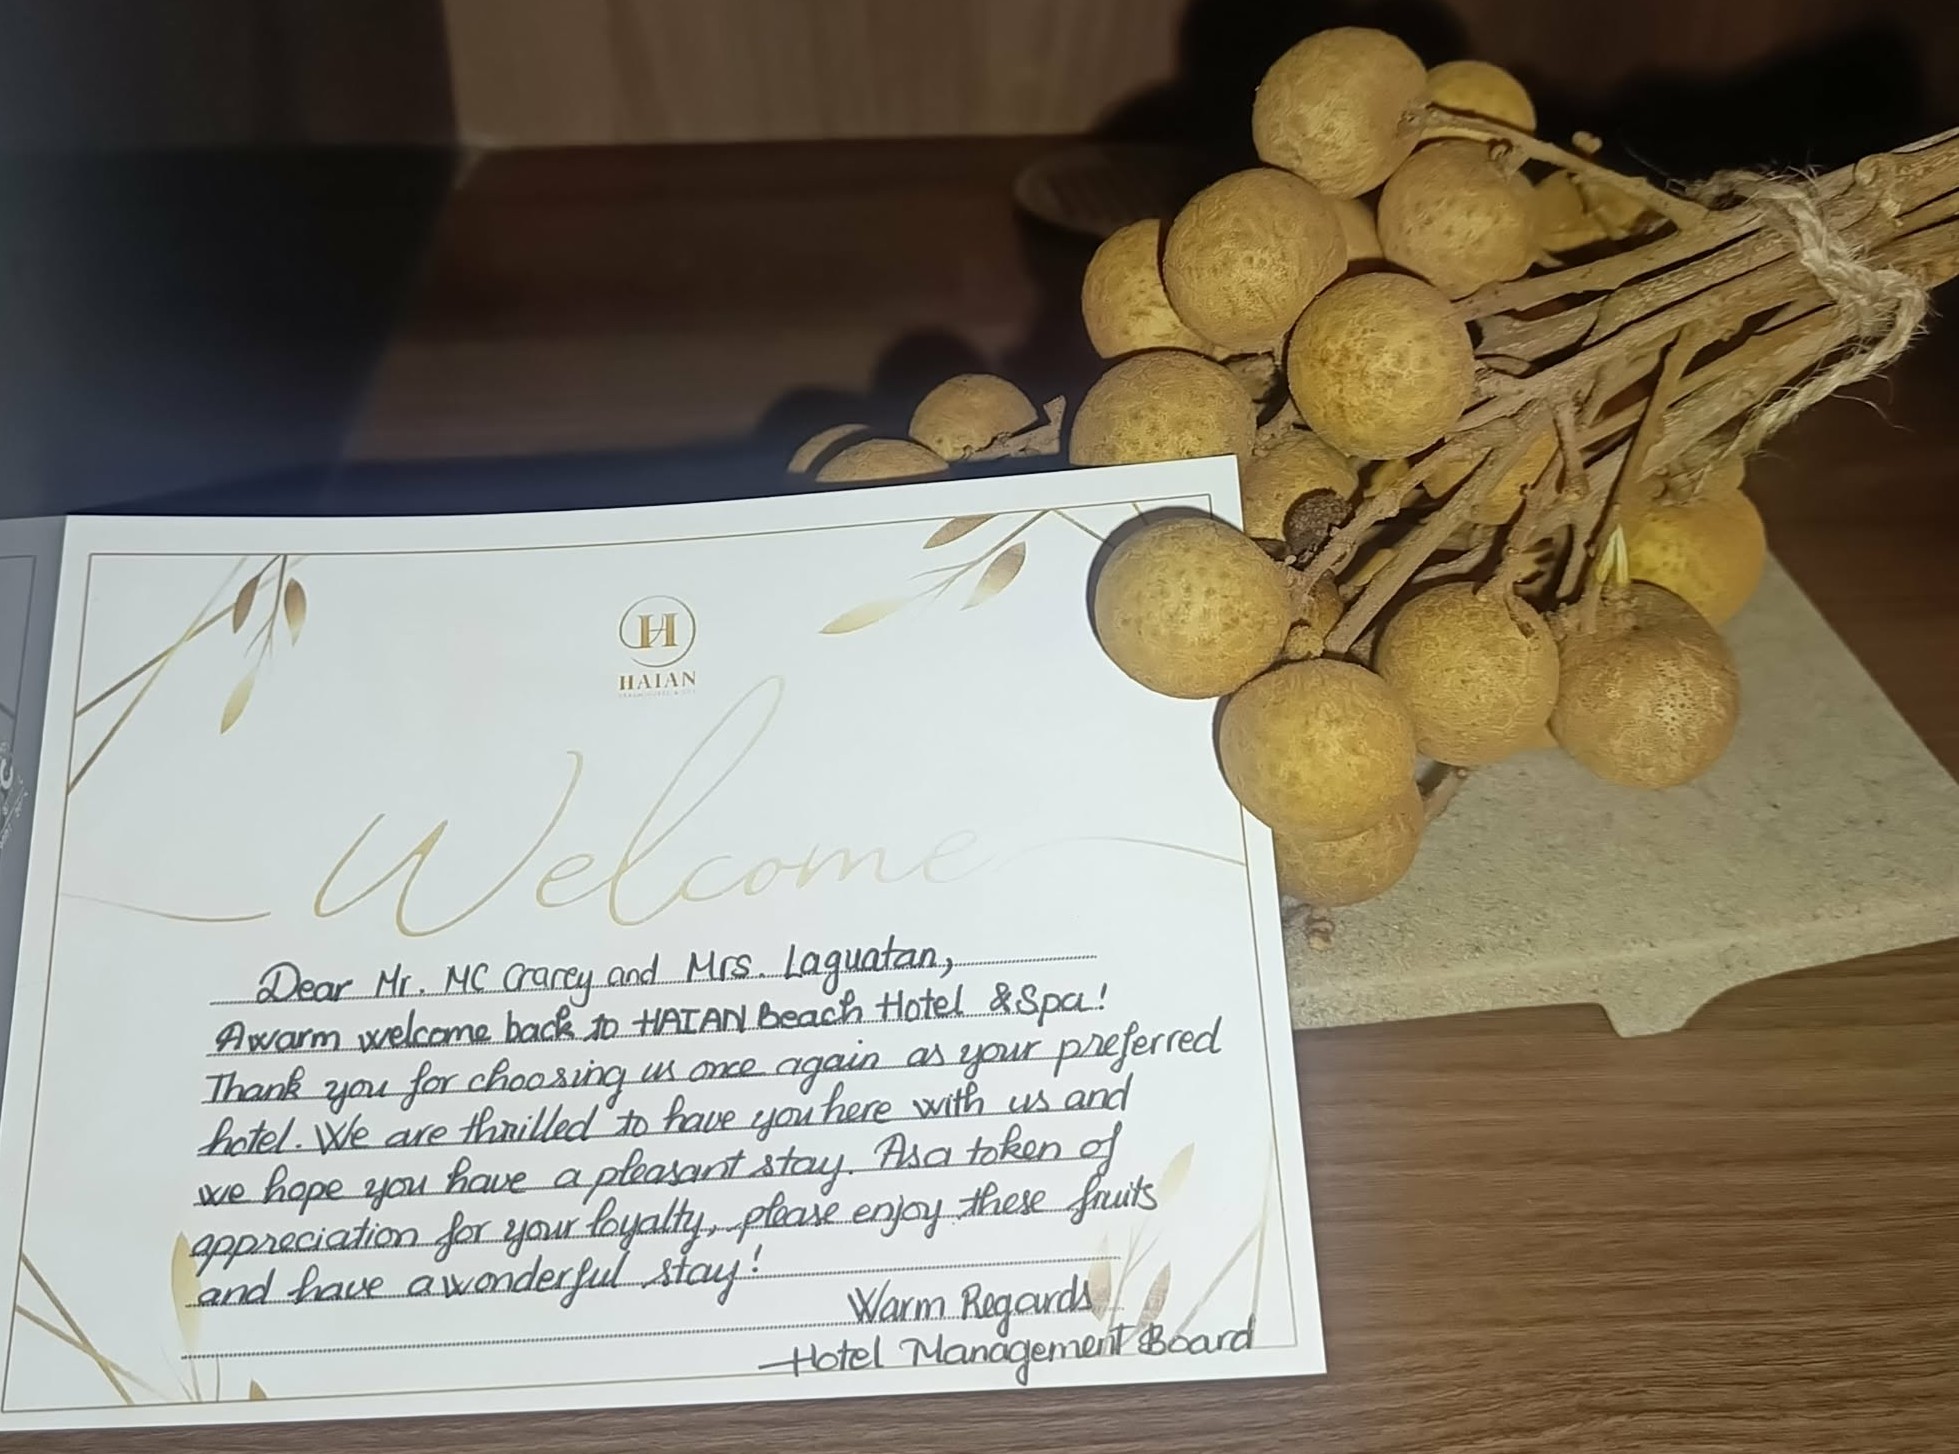 HAIAN
Welcome
Dear Mr. MC Crarey and Mrs. Laguatan,
A warm welcome back to HAIAN Beach Hotel & Spa!
Thank you for choosing us once again as your preferred
hotel. We are thrilled to have you here with us and
we hope you have a pleasant stay. As a token of
appreciation for your loyalty, please enjoy these fruits
and have a wonderful stay!
Warm Regards
Hotel Management Board